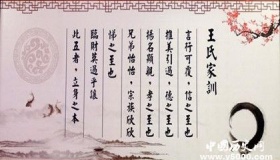 王氏家訓
言行可覆，信之至也
推美引過，德之至也
揚名顯親，孝之至也
兄弟怡怡，宗族欣欣
悌之至也
臨財莫過乎讓
此五者，立身之本
中国历史网
www.y5000.com